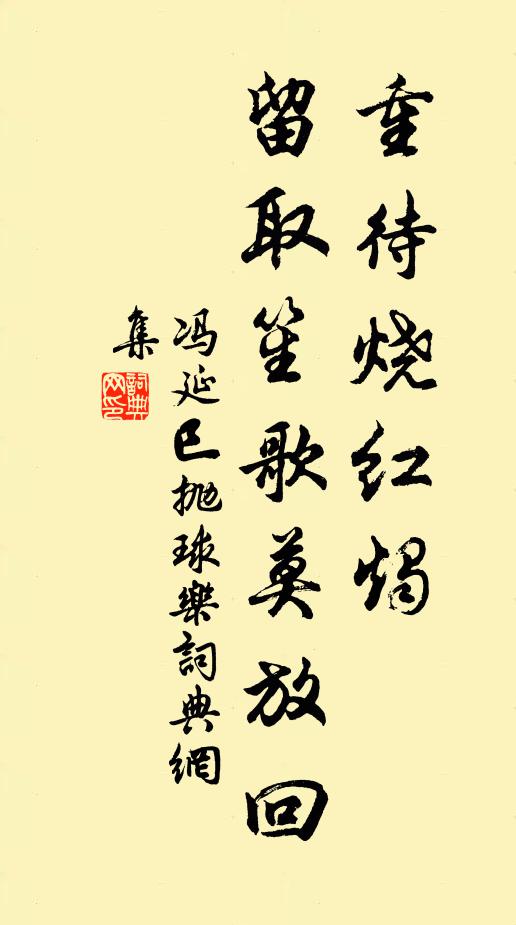 重待烧红烛
留取笙歌莫放回
冯延巳抛球樂詞典網
集
詞典网印